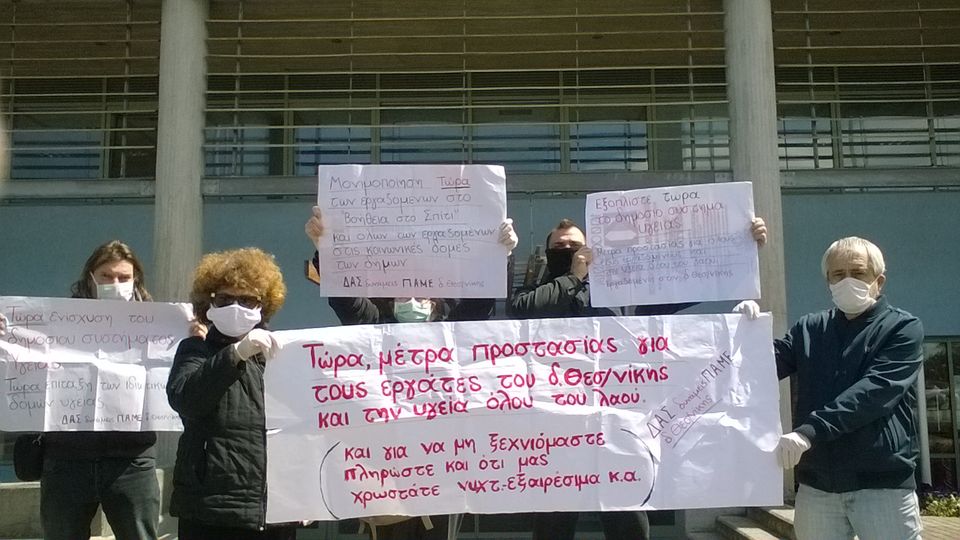 Μονιμοποίηση Τώρα
των εργαζομένων στο
"Βοήθεια στο Σπίτι"
και όλων των εργαζομένων
στις κοινωνικές δομές
των δήμων
ΔΑΣ δυναμεις ΠΑΜΕ δ Θεσ/νίκης
Εξοπλίστε τώρα
το δημόσιο σύστημα
υγείας
Μέτρα προστασίας για
εργαζομενοι στον δ.Θεσ/νίκης
Τώρα ενίσχυση του
δημοσίου συστηματος
υγείας
Τώρα επίταξη των ιδιωτικών
δομών υγείας
ΔΑΣ δυναμεις ΠΑΜΕ δ Θεσ/νίκης
Τώρα, μέτρα προστασίας για
τους εργάτες του δ.Θεσ/νίκης
και την υγεία όλου του λαού.
(και για να μη ξεχνιόμαστε
πληρώστε και ότι μας
χρωστάτε νυχτ.-εξαιρέσιμα κ.α.)
ΔΑΣ δυναμεις ΠΑΜΕ
δ Θεσ/νίκης